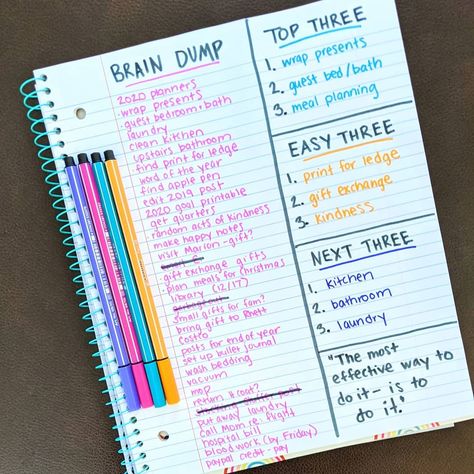 BRAIN DUMP
2020 planners
wrap presents
guest bedroom + bath
laundry
clean kitchen
upstairs bathroom
find print for ledge
word of the year
find apple pen
edit 2019 post
2020 goal printable
get quarters
random acts of kindness
make happy notes
visit Marion - gift?
gift exchange gifts
plan meals for Christmas
library (12/17)
small gifts for fam?
bring gift to Brett
Costco
posts for end of year
set up bullet journal
wash bedding
vacuum
mop
return it coat?
put away laundry
call Mom re: flight
hospital bill
blood work (by Friday)
paypal credit - pay
TOP THREE
1. wrap presents
2. guest bed/bath
3. meal planning
EASY THREE
1. print for ledge
2. gift exchange
3. kindness
NEXT THREE
1. kitchen
2. bathroom
3. laundry
"The most
effective way to
do it - is to
do it."